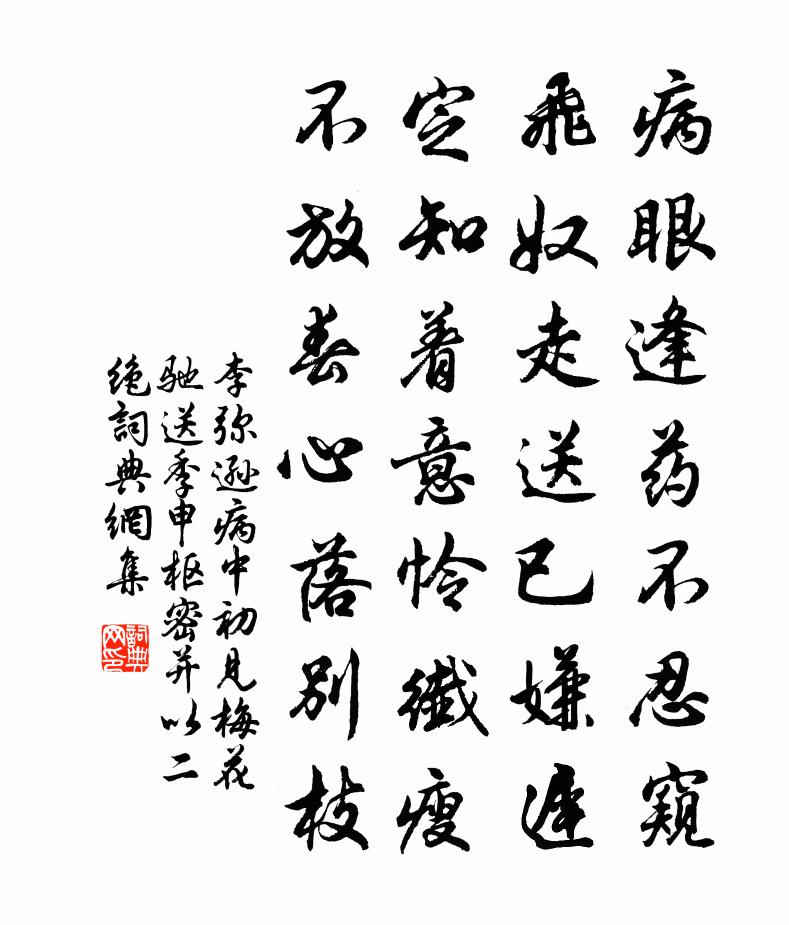 病眼逢药不忍窥
飛奴走送已嫌遲
定知着意怜纖瘦
不放春心落别枝
李弥遜病中初见梅花
馳送季申枢密并以二
绝詞典網集
詞典
网印